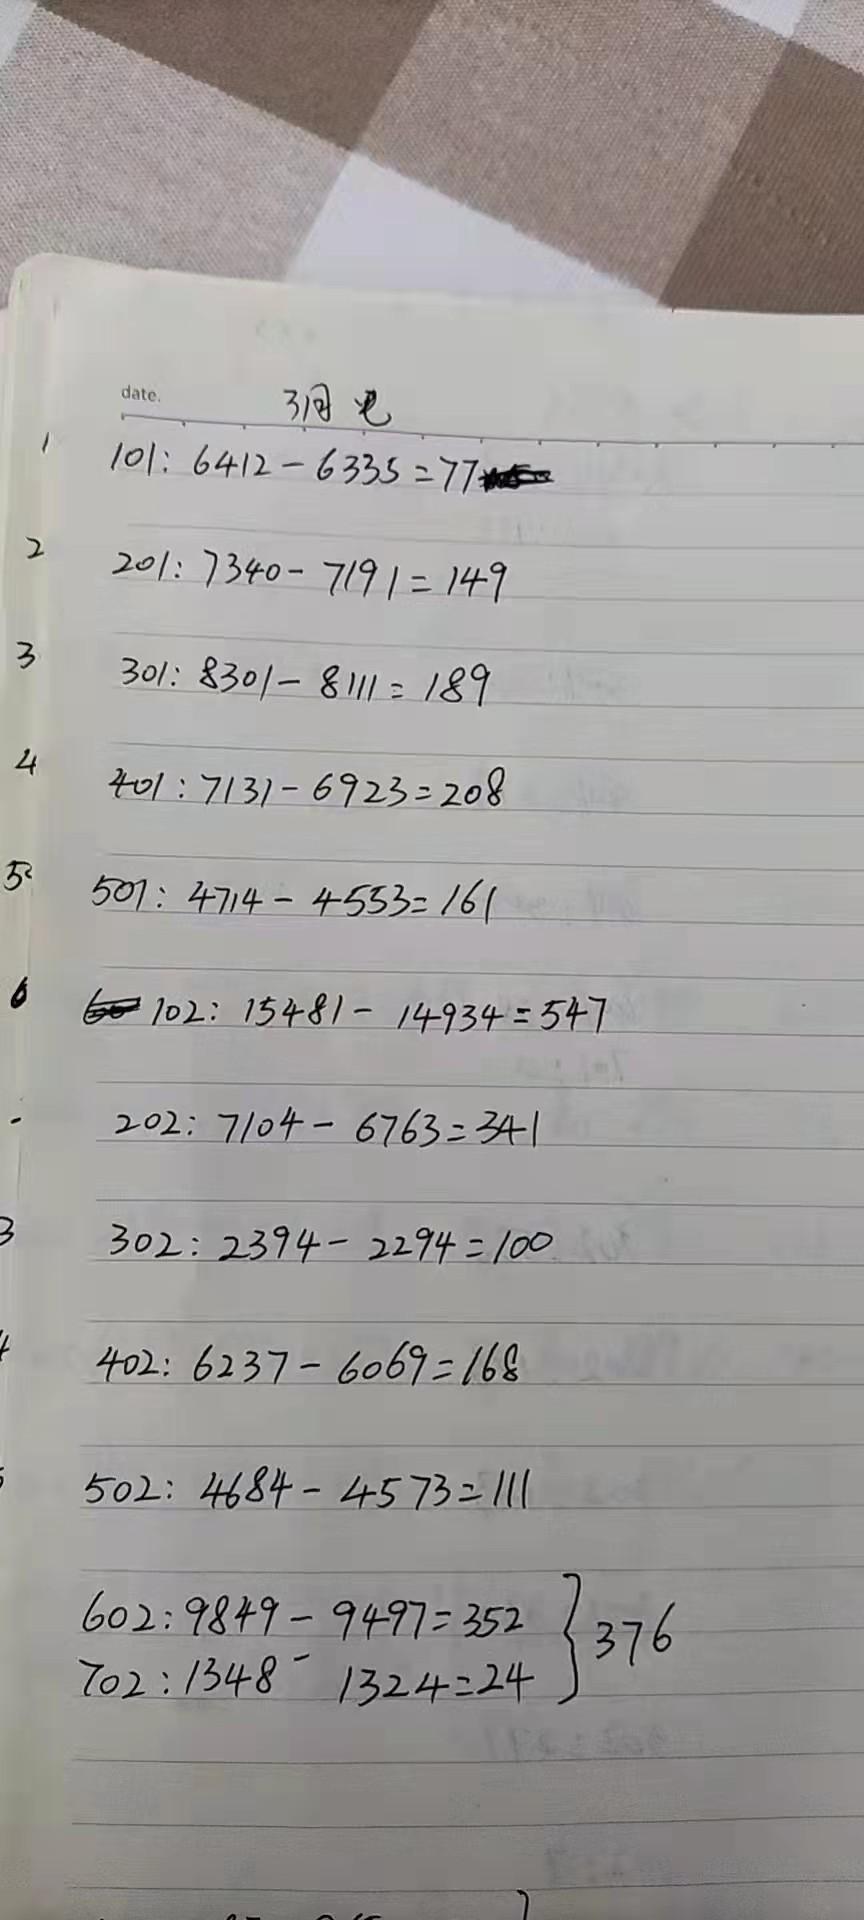 date. 3月 电
1 101: 6412-6335=77
2 201: 7340-7191=149
3 301: 8301-8111=189
4 401: 7131-6923=208
5 501: 4714-4553=161
6 102: 15481-14934=547
202: 7104-6763=341
3 302: 2394-2294=100
4 402: 6237-6069=168
502: 4684-4573=111
602: 9849-9497=352 } 376
702: 1348-1324=24